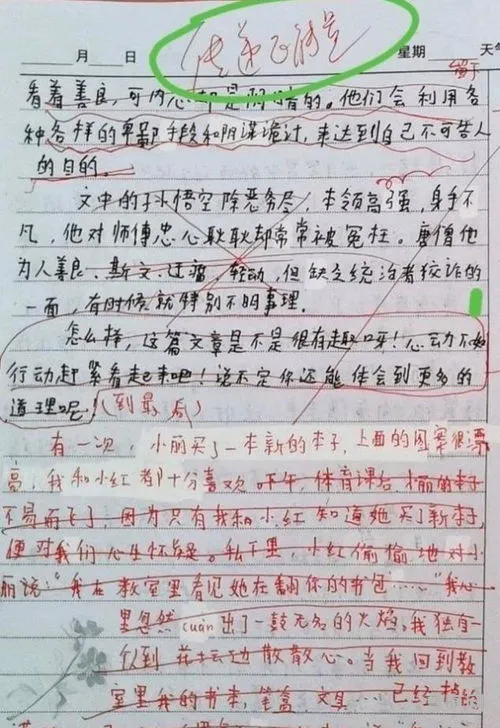 传递正能量
月 日 星期 天气
看着善良，可内心却是阴暗的。他们会利用各
种各样的卑鄙手段和阴谋诡计，来达到自己不可告人
的目的。
文中的孙悟空除恶务尽，本领高强，身手不
凡，他对师傅忠心耿耿却常常被冤枉。唐僧他
为人善良、斯文、迂腐，转动，但缺乏统治者狡诈的
一面，有时候就特别不明事理。
怎么样，这篇文章是不是很有趣呀！心动不如
行动赶紧看起来吧！说不定你还能体会到更多的
道理呢！(到最后)
有一次，小丽买了一本新的本子，上面的图案很漂
亮，我和小红都十分喜欢。下午，体育课后，小丽的本子
不易而飞了，因为只有我和小红知道她买了新本子
便对我们心生怀疑。私下里，小红偷偷地对小
丽说："我在教室里看见她在翻你的书包……"我心
里忽然cuān出了一鼓无名的火焰。我独自一
人到花坛边散散心。当我回到教
室里我的书本，笔盒，文具……已经掉给